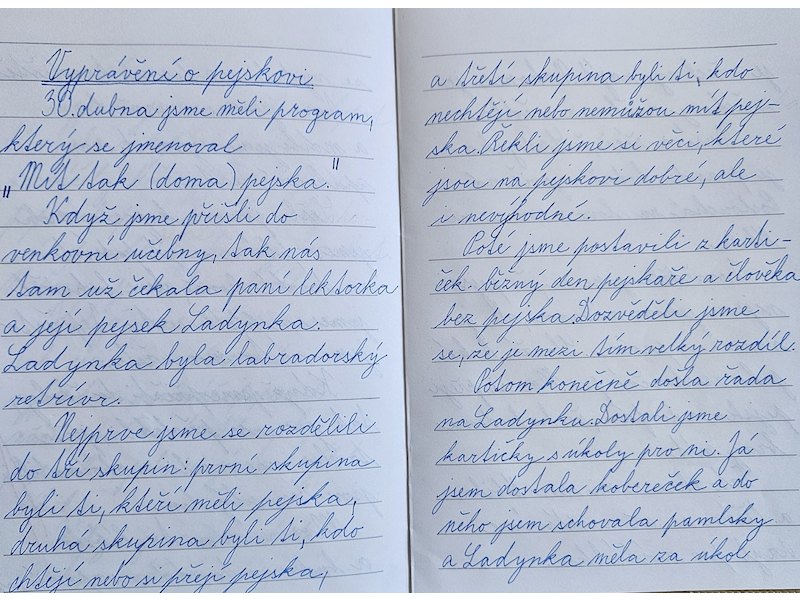 Vyprávění o pejskovi
30. dubna jsme měli program,
který se jmenoval
„Mít tak (doma) pejska."
Když jsme přišli do
venkovní učebny, tak nás
tam už čekala paní lektorka
a její pejsek Ladynka.
Ladynka byla labradorský
retrívr.
Nejprve jsme se rozdělili
do tří skupin: první skupina
byli ti, kteří měli pejska,
druhá skupina byli ti, kdo
chtějí nebo si přejí pejska,
a třetí skupina byli ti, kdo
nechtějí nebo nemůžou mít pej-
ska. Řekli jsme si věci, které
jsou na pejskovi dobré, ale
i nevýhodné.
Poté jsme postavili z karti-
ček běžný den pejskaře a člověka
bez pejska. Dozvěděli jsme
se, že je mezi tím velký rozdíl.
Potom konečně došla řada
na Ladynku. Dostali jsme
kartičky s úkoly pro ni. Já
jsem dostala kobereček a do
něho jsem schovala pamlsky
a Ladynka měla za úkol